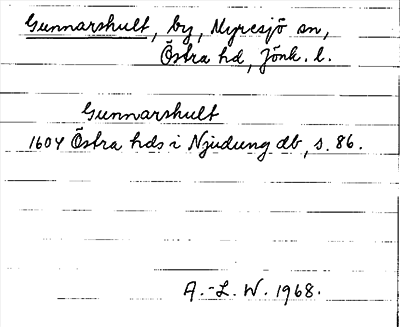 Gunnarshult, by, Myresjö sn,
Östra hd, Jönk. l.
Gunnarshult
1604 Östra hds i Njudung db, s. 86.
A.-L. W. 1968.